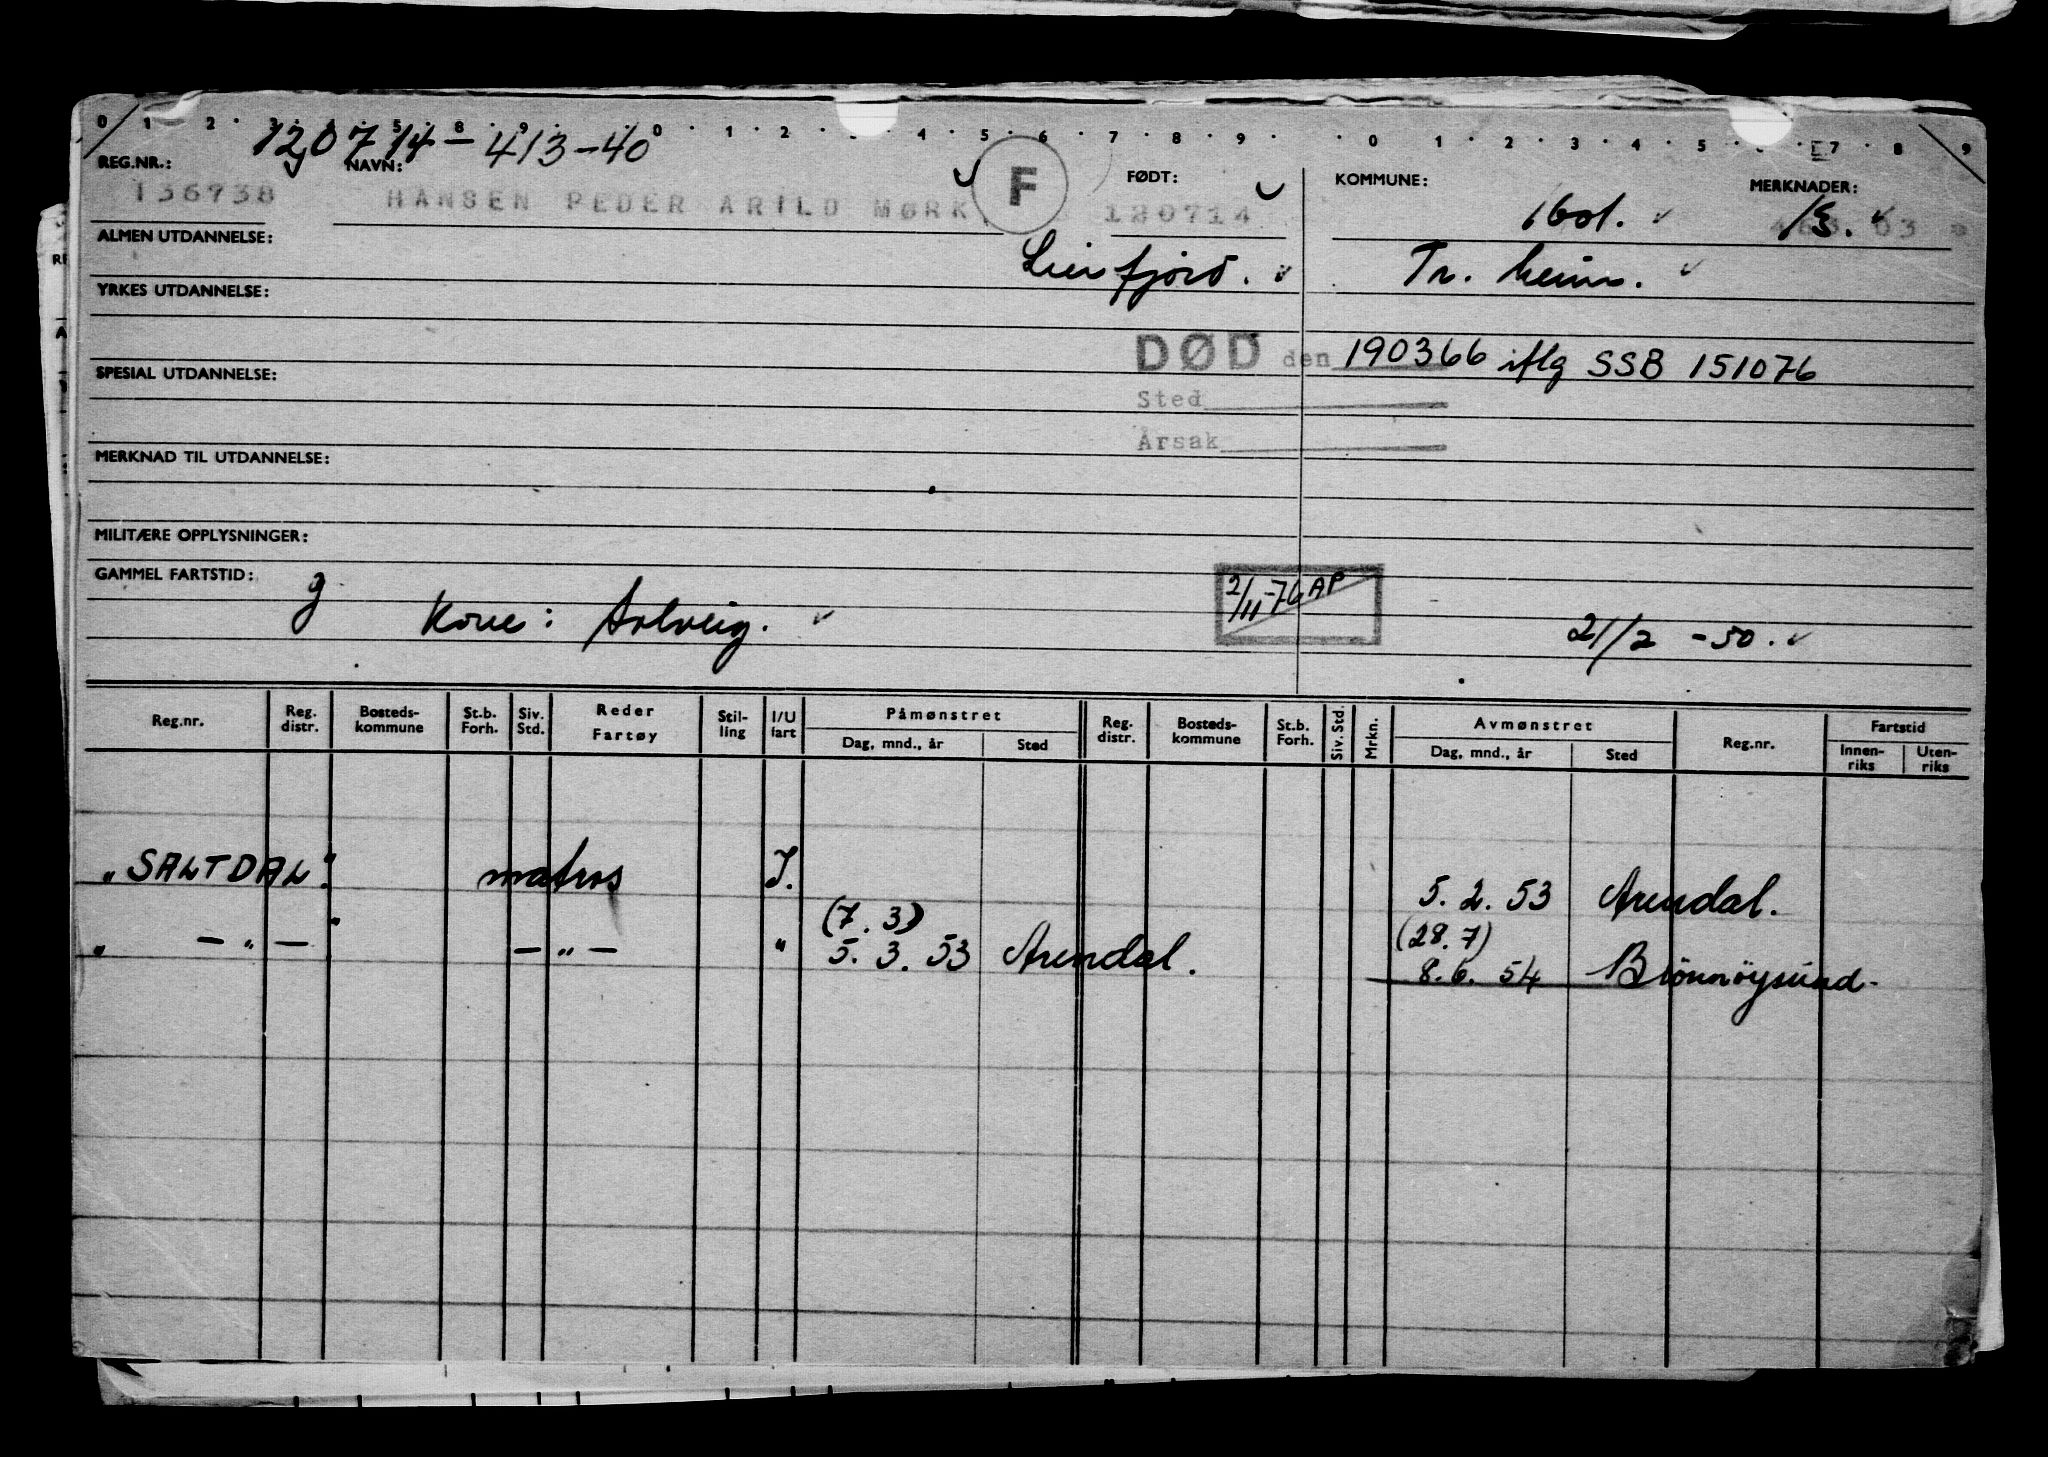 0 1 2 3 5 8 9 0 1 2 4 5 6 7 8 9 0 1 2 3 4 5 7 8 9
120714-413-40
REG.NR.: NAVN: FØDT: KOMMUNE: MERKNADER:
136938 HANSEN PEDER ARILD MØRK F 120714 1601. 03
ALMEN UTDANNELSE: Leirfjord. Tr.heim.
YRKES UTDANNELSE:
DØD den 190366 iflg SSB 151076
SPESIAL UTDANNELSE:
Sted
Årsak
MERKNAD TIL UTDANNELSE:
MILITÆRE OPPLYSNINGER:
GAMMEL FARTSTID: g
2/11-76 AP
Kone: Solveig. 21/2 -50.
Reg.nr. Reg. distr. Bosteds-kommune St.b. Forh. Siv. Std. Reder Fartøy Stil-ling I/U fart Påmønstret Dag, mnd., år Sted Reg. distr. Bosteds-kommune St.b. Forh. Siv. Std. Mrkn. Avmønstret Dag, mnd., år Sted Reg.nr. Fartstid Innen-riks Uten-riks
"SALTDAL" matros I. 5.2.53 Arendal.
(7.3) (28.7)
" — " — " — " — " 5.3.53 Arendal. 8.6.54 Brönnöysund.